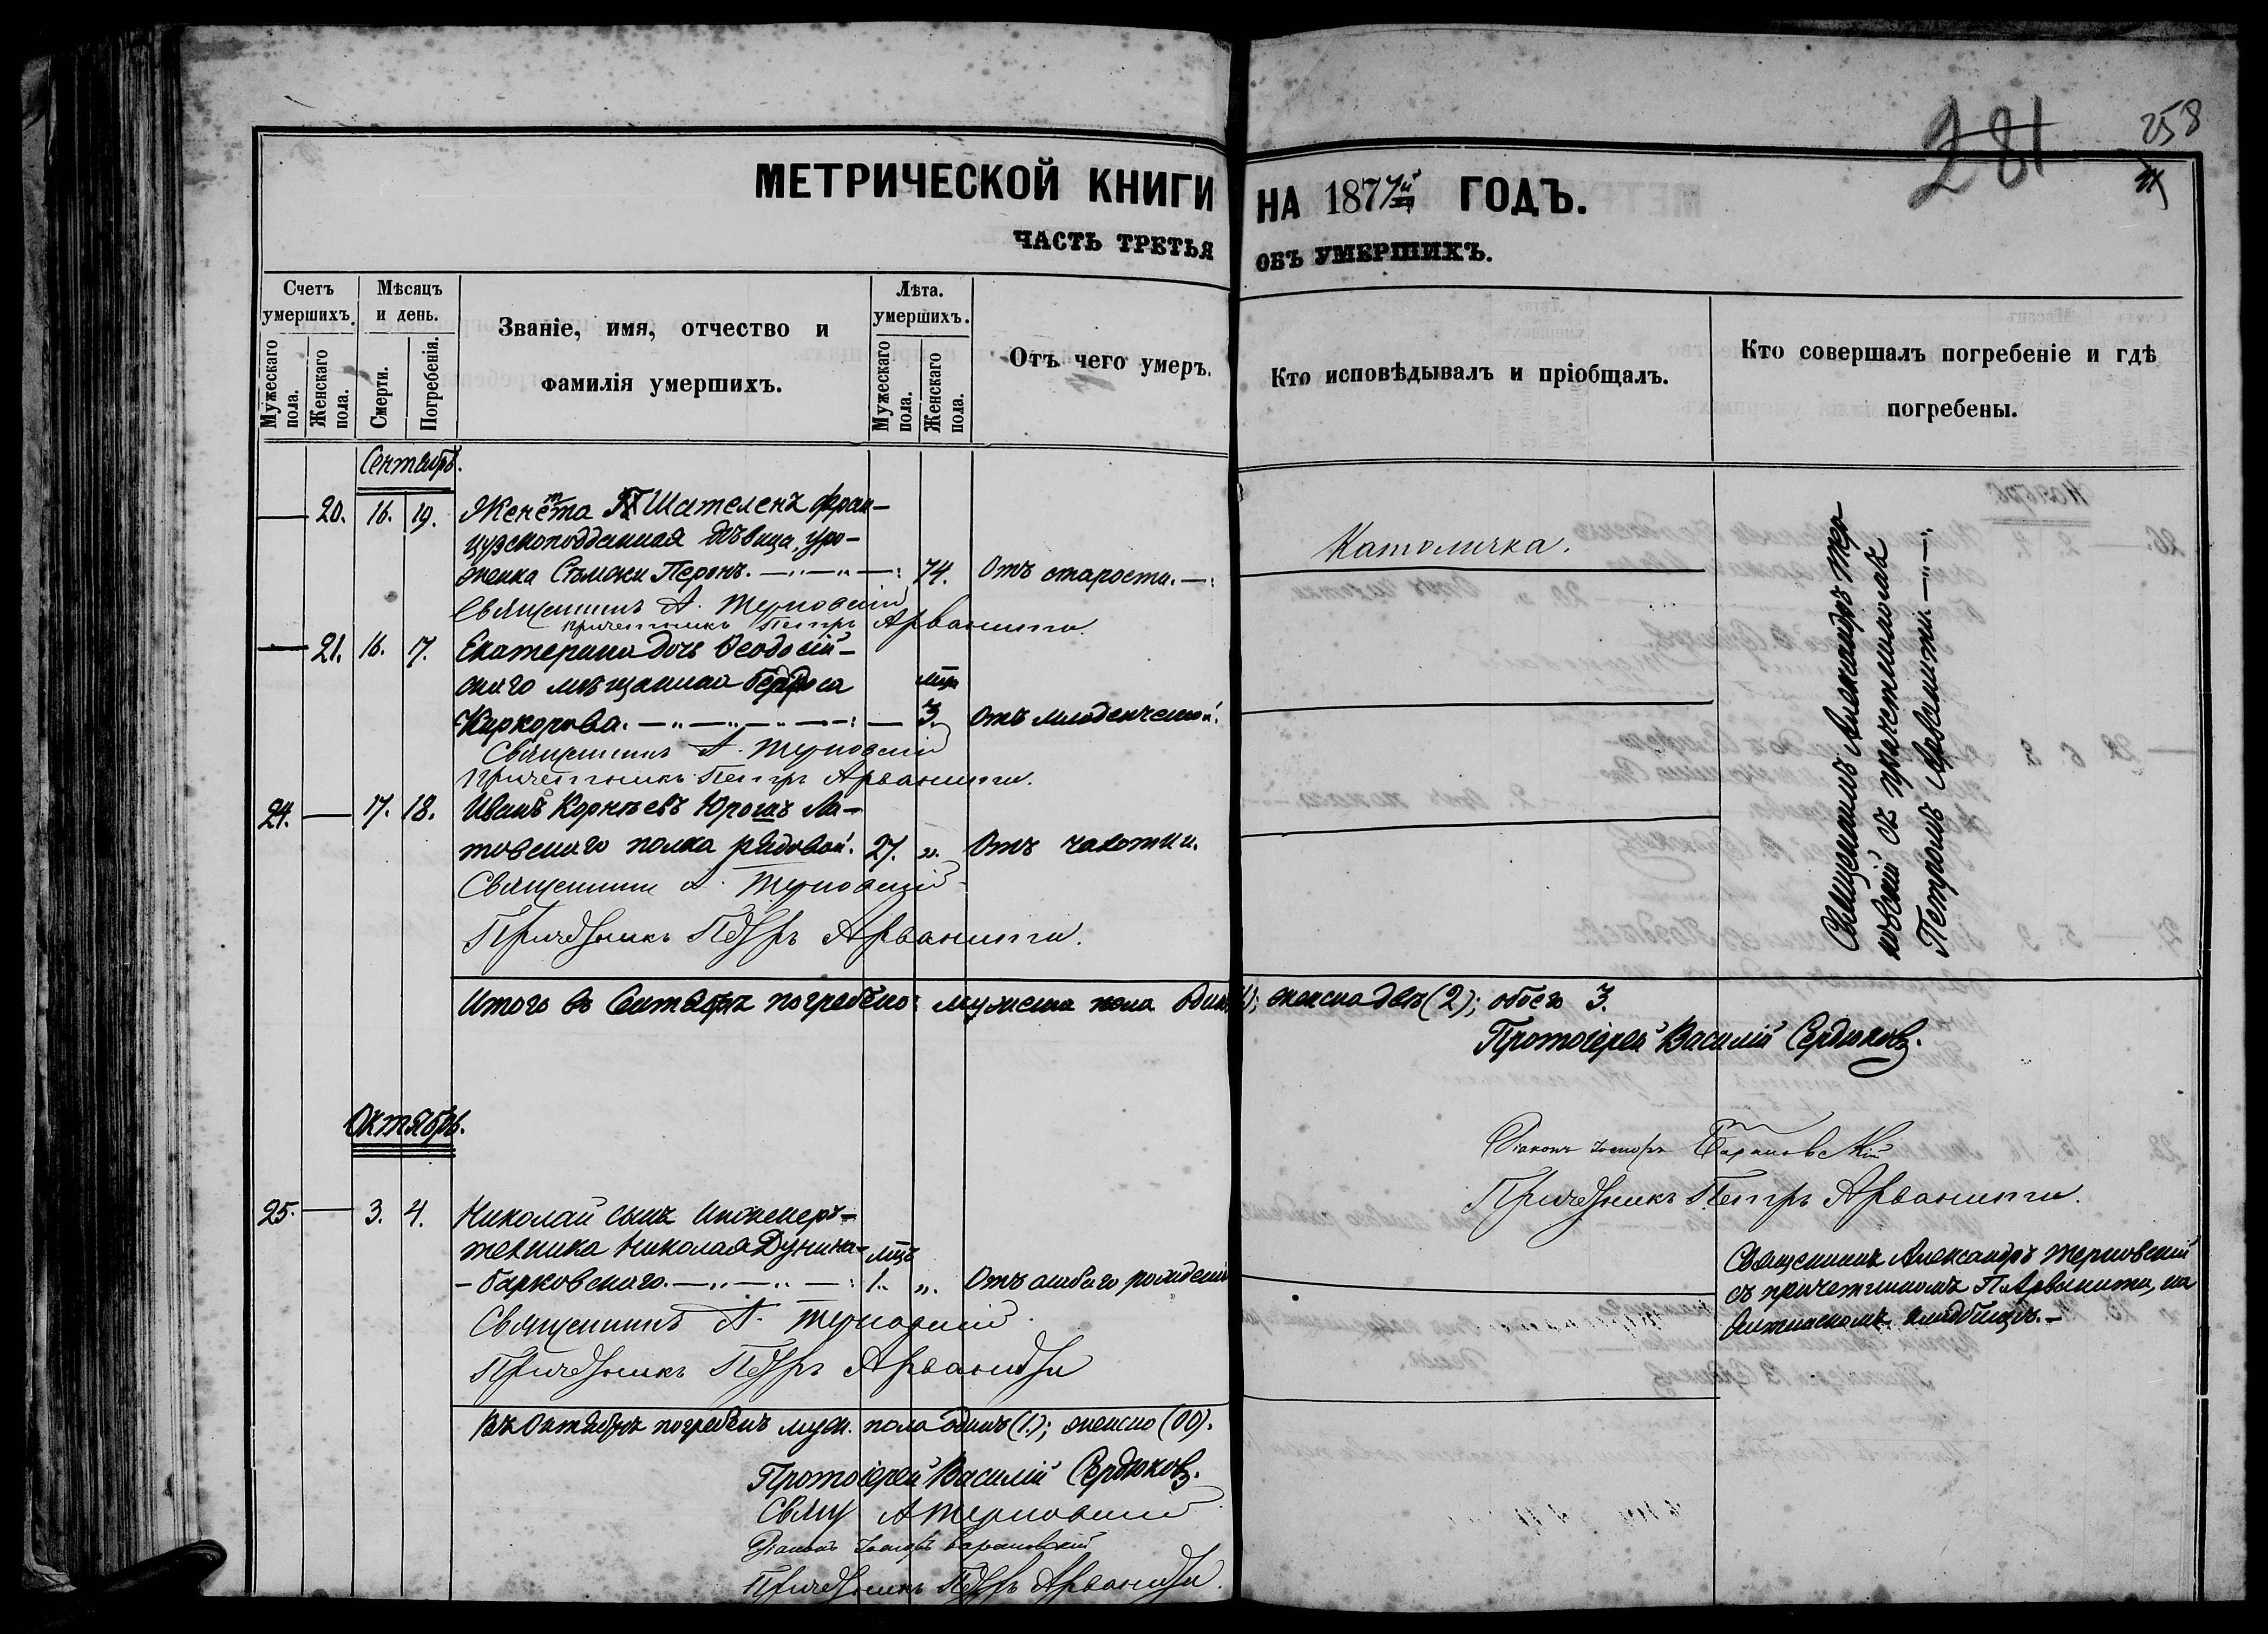 281
258
МЕТРИЧЕСКОЙ КНИГИ НА 1877й ГОДЪ.
ЧАСТЬ ТРЕТЬЯ ОБЪ УМЕРШИХЪ.
Счетъ умершихъ.
Мужескаго пола.
Женскаго пола.
Мѣсяцъ и день.
Смерти.
Погребенія.
Званіе, имя, отчество и
фамилія умершихъ.
Лѣта. умершихъ.
Мужескаго пола.
Женскаго пола.
Отъ чего умеръ.
Кто исповѣдывалъ и пріобщалъ.
Кто совершалъ погребеніе и гдѣ
погребены.
Сентябрь.
— 20. 16. 19. Женета Шателенъ фран-
цузскоподданная дѣвица, уро-
женка Перонъ. 74. Отъ старости.
Католичка.
Священникъ А. Терновскій
Причетникъ Петръ Арванити.
— 21. 16. 17. Екатерина дочь Ѳеодосій-
скаго мѣщанина
Каркорова. — 3. Отъ младенческой.
Священникъ А. Терновскій
Причетникъ Петръ Арванити.
24. — 17. 18. Иванъ Корнѣевъ Ли-
товскаго полка рядовой. 27. „ Отъ чахотки.
Священникъ А. Терновскій
Причетникъ Петръ Арванити.
Священникъ Александръ Тер
новскій съ причетникомъ
Петромъ Арванити.
Итого въ Сентябрѣ погребено: мужеска пола (1); женска двѣ (2); обоего 3.
Протоіерей Василій Сердюковъ.
Діаконъ Барановскій
Причетникъ Петръ Арванити.
Октябрь.
25. — 3. 4. Николай сынъ Инженеръ-
техника Николая Дунина-
-Барковскаго. мцъ 1. „ Отъ слабаго рожденія
Священникъ А. Терновскій
Причетникъ Петръ Арванити
Священникъ Александръ Терновскій
съ причетникомъ П. Арванити, на
кладбищѣ.
Въ Октябрѣ погребенъ муж. пола одинъ (1.); женско (00).
Протоіерей Василій Сердюковъ.
Свящ А Терновскій
Діаконъ Барановскій
Причетникъ Петръ Арванити.